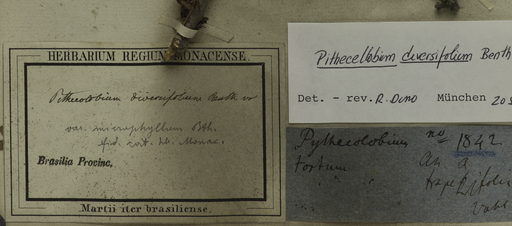 HERBARIUM REGIUM MONACENSE.
Pithecolobium diversifolium Benth
var. microphyllum Bth.
fid. hb. Monac.
Brasilia Provinc.
Martii iter brasiliense.
Pithecellobium diversifolium Benth
Det. - rev. R. München 20
Pythecolobium no 1842
tortum
Vahl